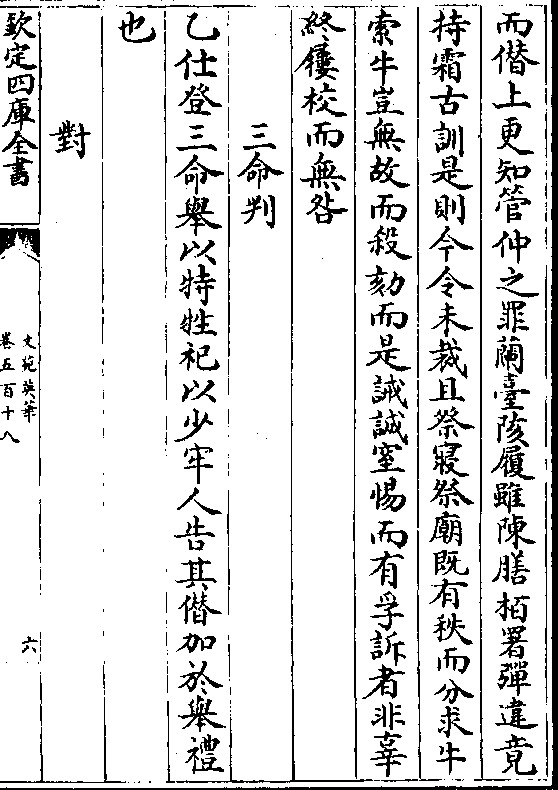 而僭上更知管仲之罪蘭臺陔履雖陳膳栢署彈違竟
持霜古訓是則今令未裁且祭寢祭廟既有秩而分求牛
索牛豈無故而殺劾而是誠誠窒惕而有孚訴者非辜
終屨校而無咎
三命判
乙仕登三命舉以特牲祀以少牢人告其僭加於舉禮
也
對
欽定四庫全書
文苑英華
卷五百十八
六